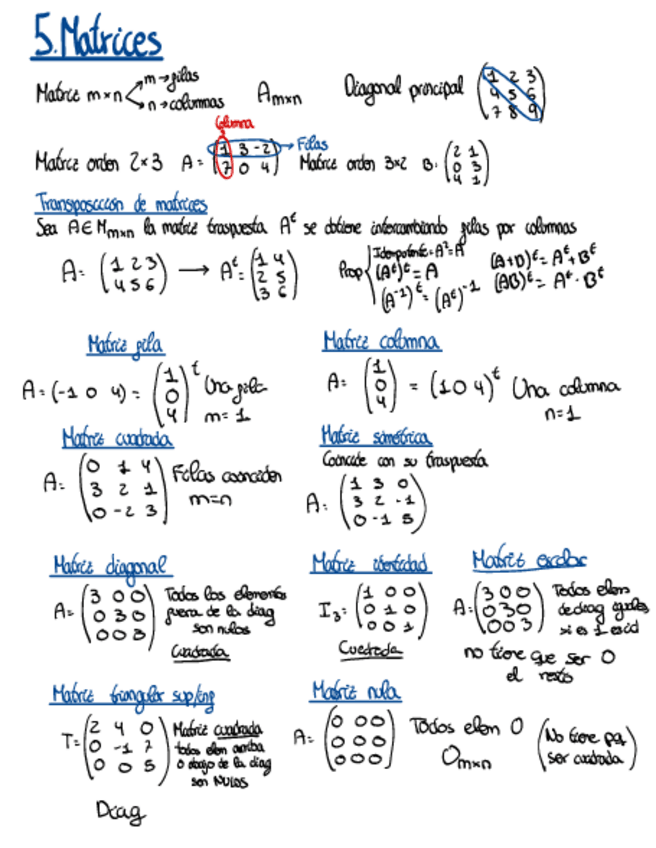 5. Matrices
Matriz m×n m→filas n→columnas A m×n Diagonal principal (1 2 3
4 5 6
7 8 9)
Columna
Matriz orden 2×3 A = (1 3 -2 → Filas
7 0 4) Matriz orden 3×2 B: (2 1
0 3
4 1)
Transposición de matrices
Sea A∈M m×n la matriz traspuesta Aᵗ se obtiene intercambiando filas por columnas
A = (1 2 3
4 5 6) → Aᵗ = (1 4
2 5
3 6)
Prop { Idempotente = A² = A
(Aᵗ)ᵗ = A
(A⁻¹)ᵗ = (Aᵗ)⁻¹
(A+B)ᵗ = Aᵗ + Bᵗ
(AB)ᵗ = Aᵗ · Bᵗ
Matriz fila
A = (-1 0 4) = (1
0
4)ᵗ Una fila
m = 1
Matriz columna
A = (1
0
4) = (1 0 4)ᵗ Una columna
n=1
Matriz cuadrada
A = (0 1 4
3 2 1
0 -2 3) Filas coinciden
m=n
Matriz simétrica
Coincide con su traspuesta
A = (1 3 0
3 2 -1
0 -1 5)
Matriz diagonal
A = (3 0 0
0 3 0
0 0 3) Todos los elementos
fuera de la diag
son nulos
Cuadrada
Matriz identidad
I₃ = (1 0 0
0 1 0
0 0 1)
Cuadrada
Matriz escalar
A = (3 0 0
0 3 0
0 0 3) Todos elem
de diag iguales
si es 1 es id
no tiene que ser 0
el resto
Matriz triangular sup/inf
T = (2 4 0
0 -1 7
0 0 5) Matriz cuadrada
todos elem arriba
o abajo de la diag
son NULOS
Diag
Matriz nula
A = (0 0 0
0 0 0
0 0 0) Todos elem 0
O m×n
(No tiene pq
ser cuadrada)